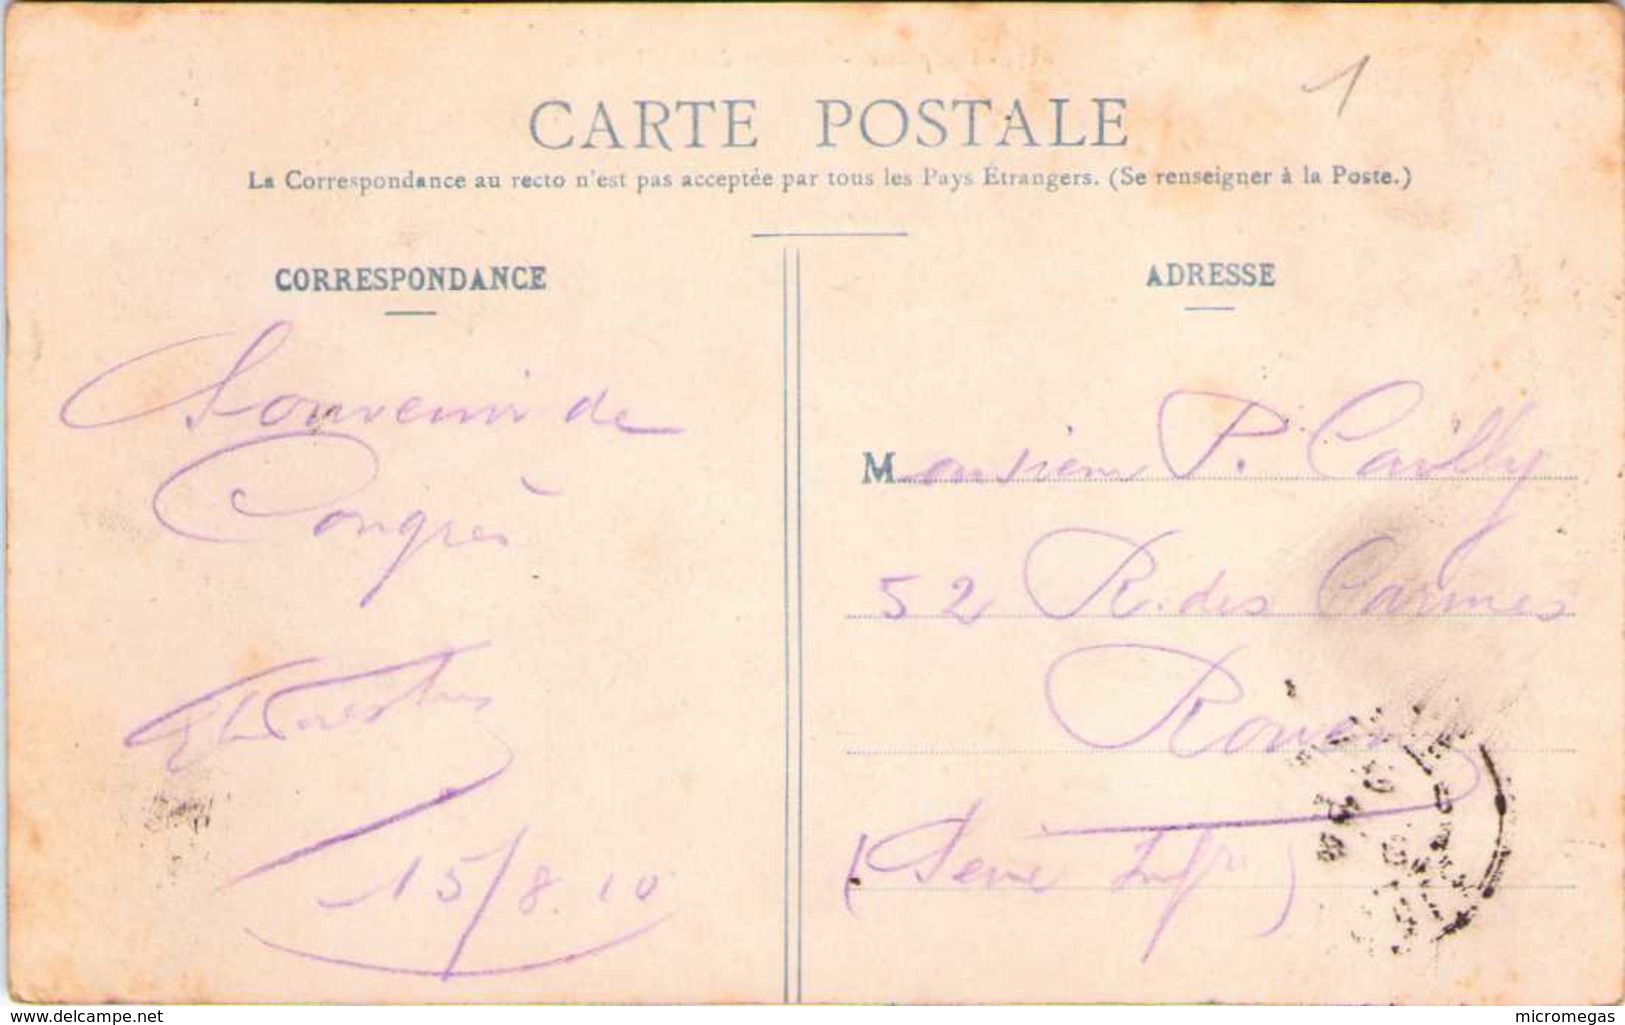 1
CARTE POSTALE
La Correspondance au recto n'est pas acceptée par tous les Pays Étrangers. (Se renseigner à la Poste.)
CORRESPONDANCE
Souvenir de
Congrès
15/8.10
ADRESSE
Monsieur P. Cavilly
52 R. des Carmes
Rouen
(Seine Infre)
www.delcampe.net
micromegas